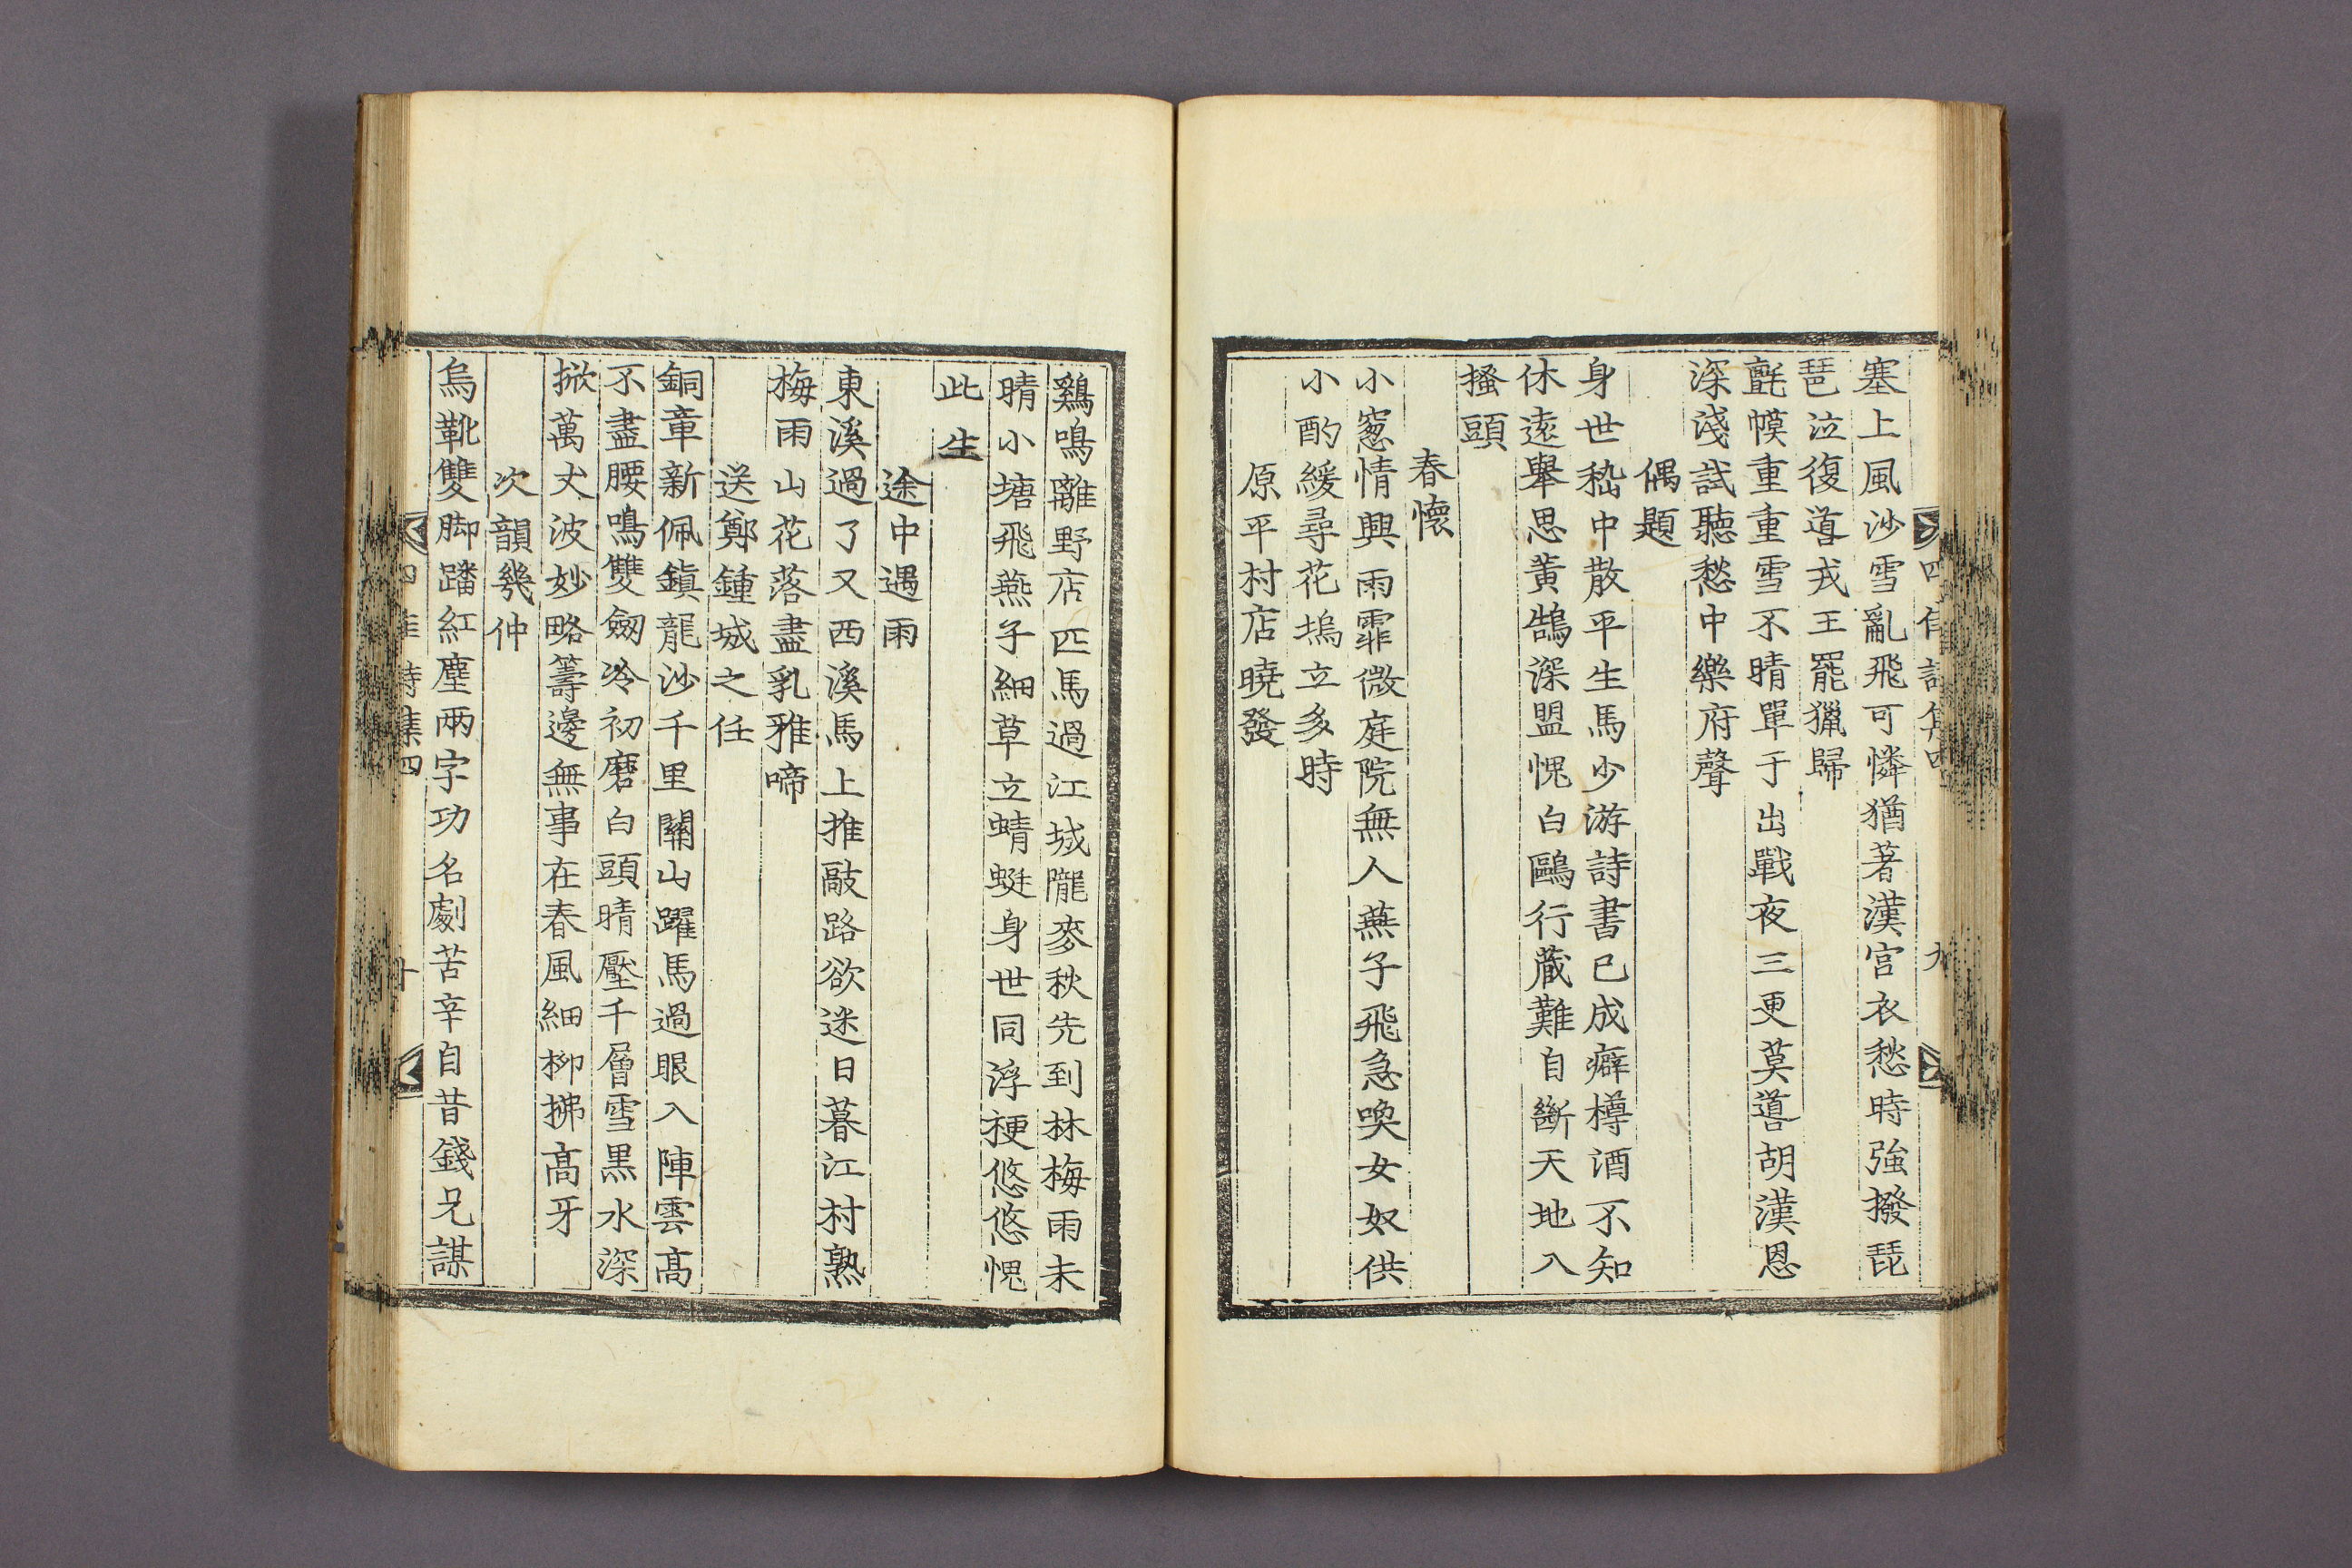 塞上風沙雪亂飛可憐猶著漢宮衣愁時強撥琵
琶泣復噵戎王罷獵歸
氈幙重重雪不晴單于出戰夜三更莫噵胡漢恩
深淺試聽愁中樂府聲
偶題
身世嵇中散平生馬少游詩書已成癖樽酒不知
休遠舉思黃鵠深盟愧白鷗行藏難自斷天地入
搔頭
春懷
小窓情興雨霏微庭院無人燕子飛急喚女奴供
小酌緩尋花塢立多時
原平村店曉發
鷄鳴離野店匹馬過江城隴麥秋先到林梅雨未
晴小塘飛燕子細草立蜻蜓身世同浮梗悠悠愧
此生
途中遇雨
東溪過了又西溪馬上推敲路欲迷日暮江村熟
梅雨山花落盡乳雅啼
送鄭鍾城之任
銅章新佩鎭龍沙千里關山躍馬過眼入陣雲高
不盡腰鳴雙劒冷初磨白頭晴壓千層雪黑水深
掀萬丈波妙略籌邊無事在春風細柳拂高牙
次韻幾仲
烏靴雙脚蹯紅塵兩字功名劇苦辛自昔錢兄謀
詩集四
十